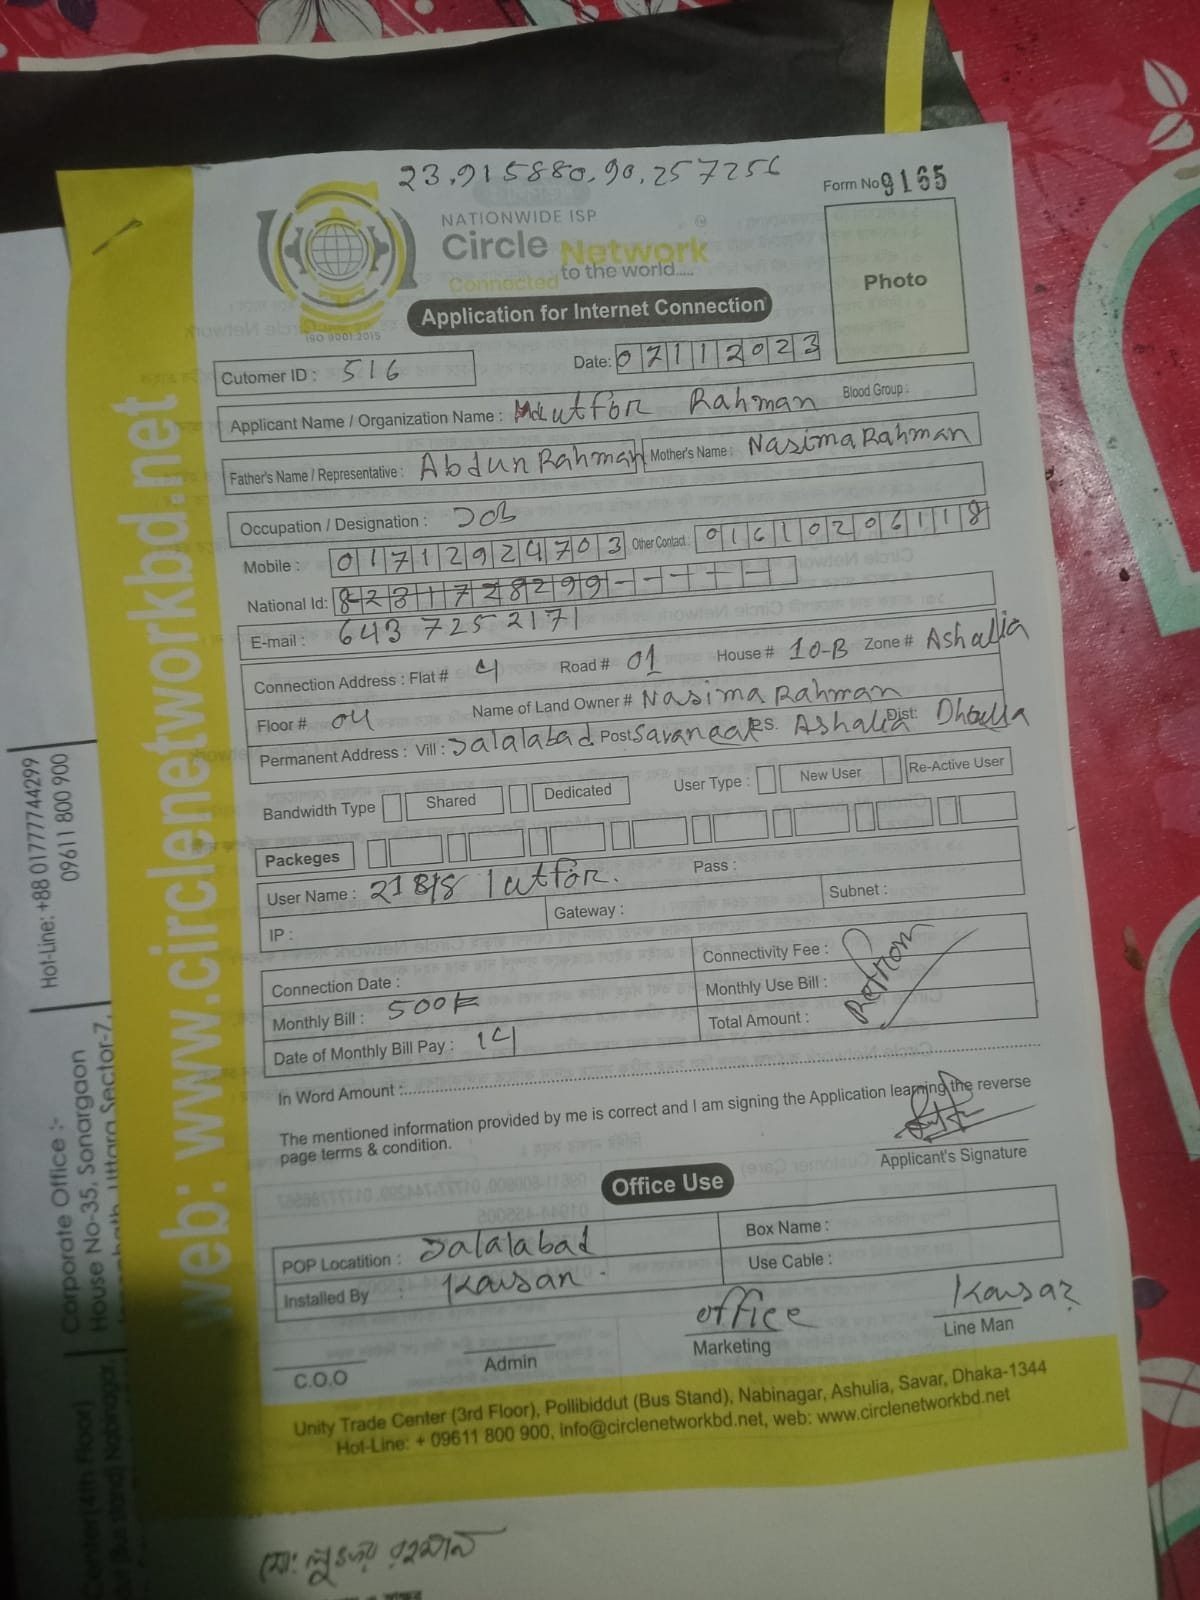 23.915880, 90.257256
Form No 9165
NATIONWIDE ISP
Circle Network
Connected to the world.....
ISO 9001:2015
Photo
Application for Internet Connection
Cutomer ID : 516
Date: 07112023
Applicant Name / Organization Name : Md Lutfor Rahman Blood Group :
Father's Name / Representative : Abdur Rahman Mother's Name : Nasima Rahman
Occupation / Designation : Job
Mobile : 01712924703 Other Contact 01610206118
National Id: 8231728299-----
E-mail : 6437252171
Connection Address : Flat # 4 Road # 01 House # 10-B Zone # Ashulia
Floor # 04 Name of Land Owner # Nasima Rahman
Permanent Address : Vill : Jalalabad Post PS. Ashulia Dist: Dhaka
Bandwidth Type Shared Dedicated User Type : New User Re-Active User
Packeges
User Name : lutfor. Pass :
IP : Gateway : Subnet :
Connection Date : Connectivity Fee :
Monthly Bill : 500 Monthly Use Bill :
Date of Monthly Bill Pay : 14 Total Amount :
In Word Amount :
The mentioned information provided by me is correct and I am signing the Application learning the reverse
page terms & condition.
Applicant's Signature
Office Use
POP Locatition : Jalalabad Box Name :
Installed By : Kawsar Use Cable :
office Kawsar
C.O.O Admin Marketing Line Man
Unity Trade Center (3rd Floor), Pollibiddut (Bus Stand), Nabinagar, Ashulia, Savar, Dhaka-1344
Hot-Line: + 09611 800 900, info@circlenetworkbd.net, web: www.circlenetworkbd.net
web: www.circlenetworkbd.net
Hot-Line: +88 01777744299
09611 800 900
Corporate Office :-
House No-35, Sonargaon
Uttara Sector-7,
Center (4th Floor)
(Bus stand) Nabinagar,
মো: লুৎফর রহমান